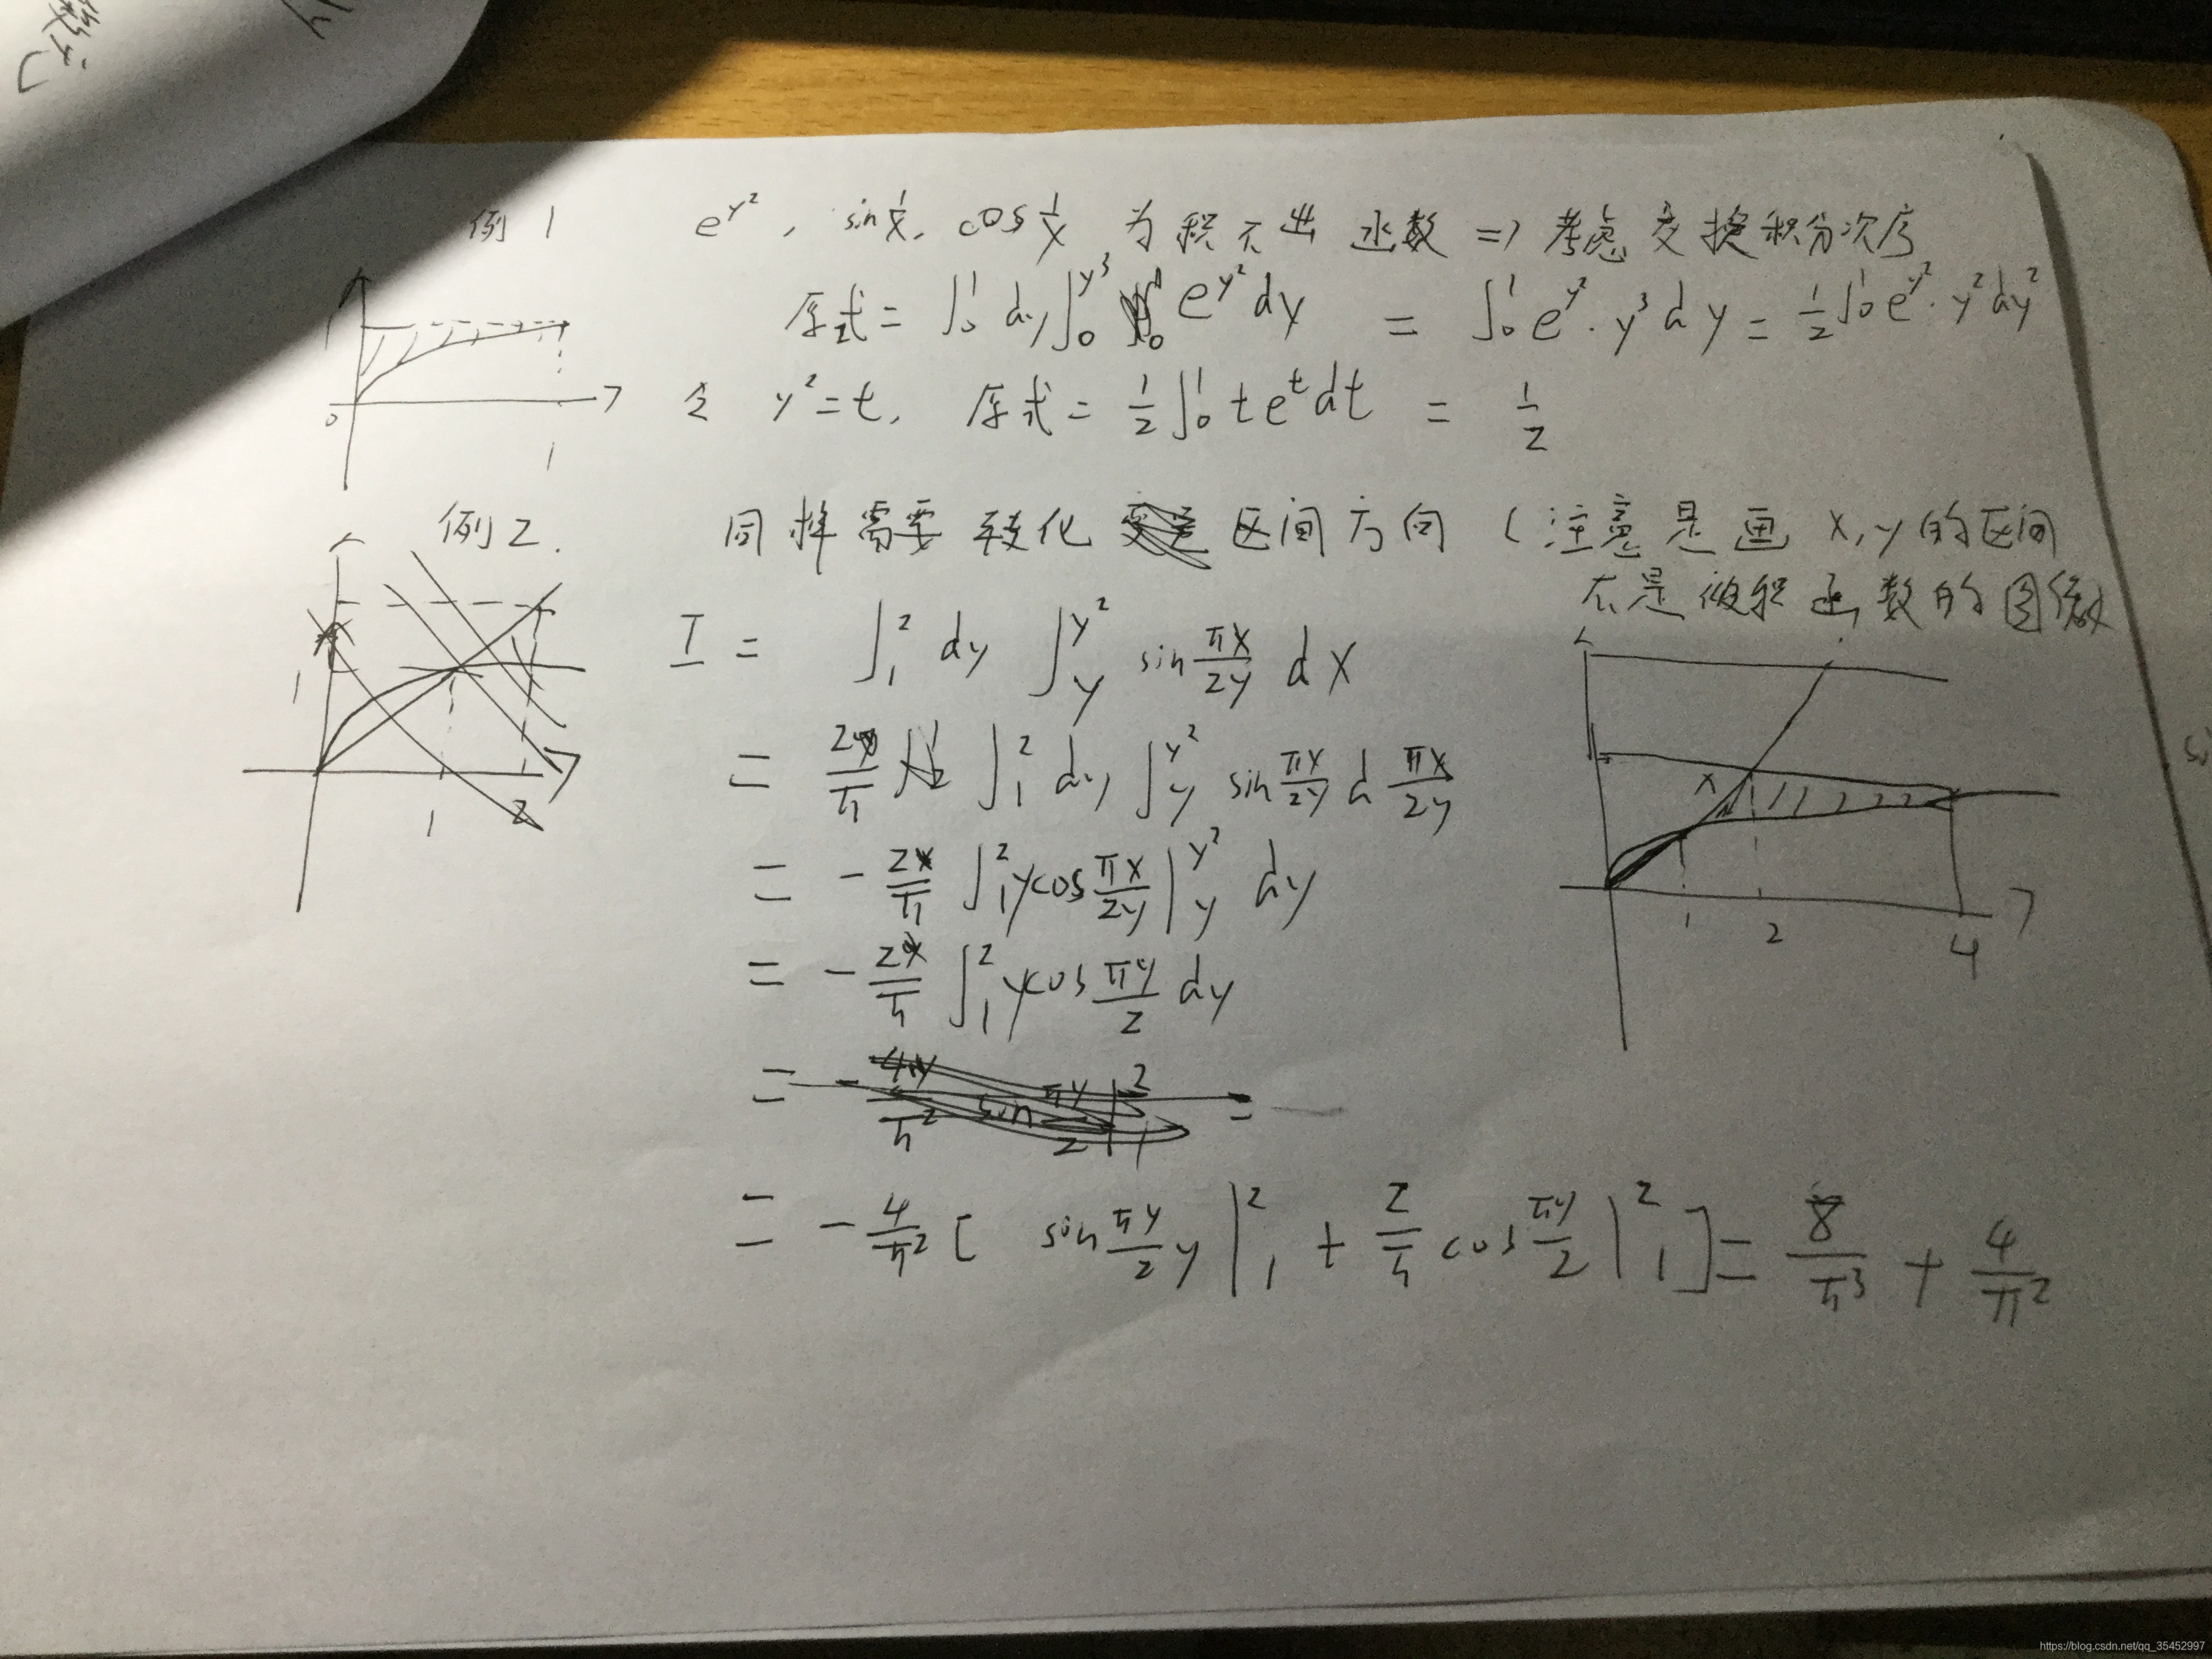 例1 e^{y²}, sin 1/x, cos 1/x 为积不出函数 => 考虑交换积分次序
原式 = ∫₀¹ dy ∫₀^{y³} e^{y²} dy = ∫₀¹ e^{y²}·y³ dy = 1/2 ∫₀¹ e^{y²}·y² dy²
令 y²=t, 原式 = 1/2 ∫₀¹ t e^t dt = 1/2
0 1
例2. 同样需要转化 区间方向 (注意是画 x,y的区间
不是被积函数的图像
I = ∫₁² dy ∫_y^{y²} sin πx/2y dx
= 2/π ∫₁² dy ∫_y^{y²} sin πx/2y d πx/2y
= - 2/π ∫₁² y cos πx/2y |_y^{y²} dy
= - 2/π ∫₁² y cos πy/2 dy
= - 4/π² [ sin πy/2 y |₁² + 2/π cos πy/2 |₁² ] = 8/π³ + 4/π²
1 1 2
1 2 4
https://blog.csdn.net/qq_35452997